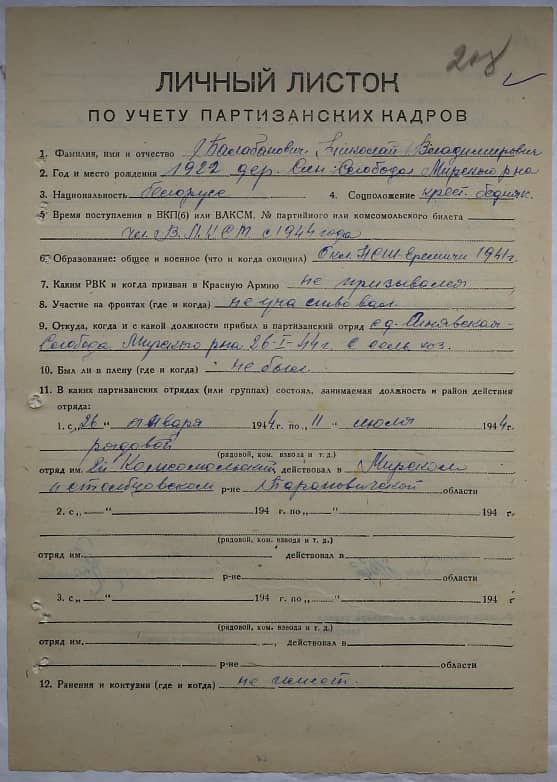 208
ЛИЧНЫЙ ЛИСТОК
ПО УЧЕТУ ПАРТИЗАНСКИХ КАДРОВ
1. Фамилия, имя и отчество Балабанович Николай Владимирович
2. Год и место рождения 1922 дер. Син-Слобода Мирского р-на
3. Национальность белорусс 4. Соцположение крест. бедняк.
5 Время поступления в ВКП(б) или ВЛКСМ, № партийного или комсомольского билета
чл. ВЛКСМ с 1944 года
6. Образование: общее и военное (что и когда окончил) 6 кл НСШ-Еремичи 1941г
7. Каким РВК и когда призван в Красную Армию не призывался
8. Участие на фронтах (где и когда) не участвовал
9. Откуда, когда и с какой должности прибыл в партизанский отряд с д. Синявская-
Слобода Мирского р-на 26-I-44г. с сель хоз.
10. Был ли в плену (где и когда) не был.
11. В каких партизанских отрядах (или группах) состоял, занимаемая должность и район действия
отряда:
1. с „26" января 1944г. по „11" июля 1944г.
рядовой
(рядовой, ком. взвода и т. д.)
отряд им. Комсомольский действовал в Мирском
и столбцовском р-не Барановической области
2. с „ " 194 г. по „ " 194 г.
(рядовой, ком. взвода и т. д.)
отряд им. действовал в
р-не области
3. с „ " 194 г. по „ " 194 г
(рядовой, ком. взвода и т. д.)
отряд им. действовал в
р-не области
12. Ранения и контузии (где и когда) не имеет.